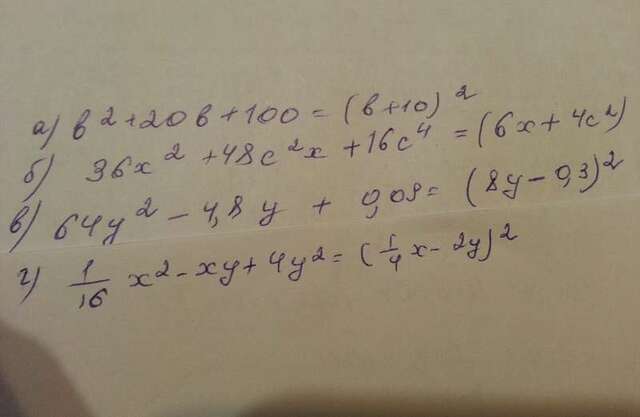 а) b² + 20b + 100 = (b + 10)²
б) 36x² + 48c²x + 16c⁴ = (6x + 4c²)
в) 64y² - 4,8y + 0,09 = (8y - 0,3)²
г) 1/16 x² - xy + 4y² = (1/4 x - 2y)²